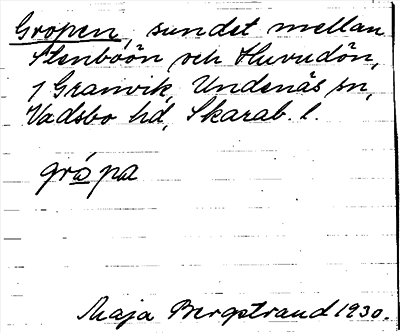 Gropen, sundet mellan
Stenböön och Huvudön,
1 Granvik, Undenäs sn,
Vadsbo hd, Skarab. l.
gråpa
Maja Bergstrand 1930.